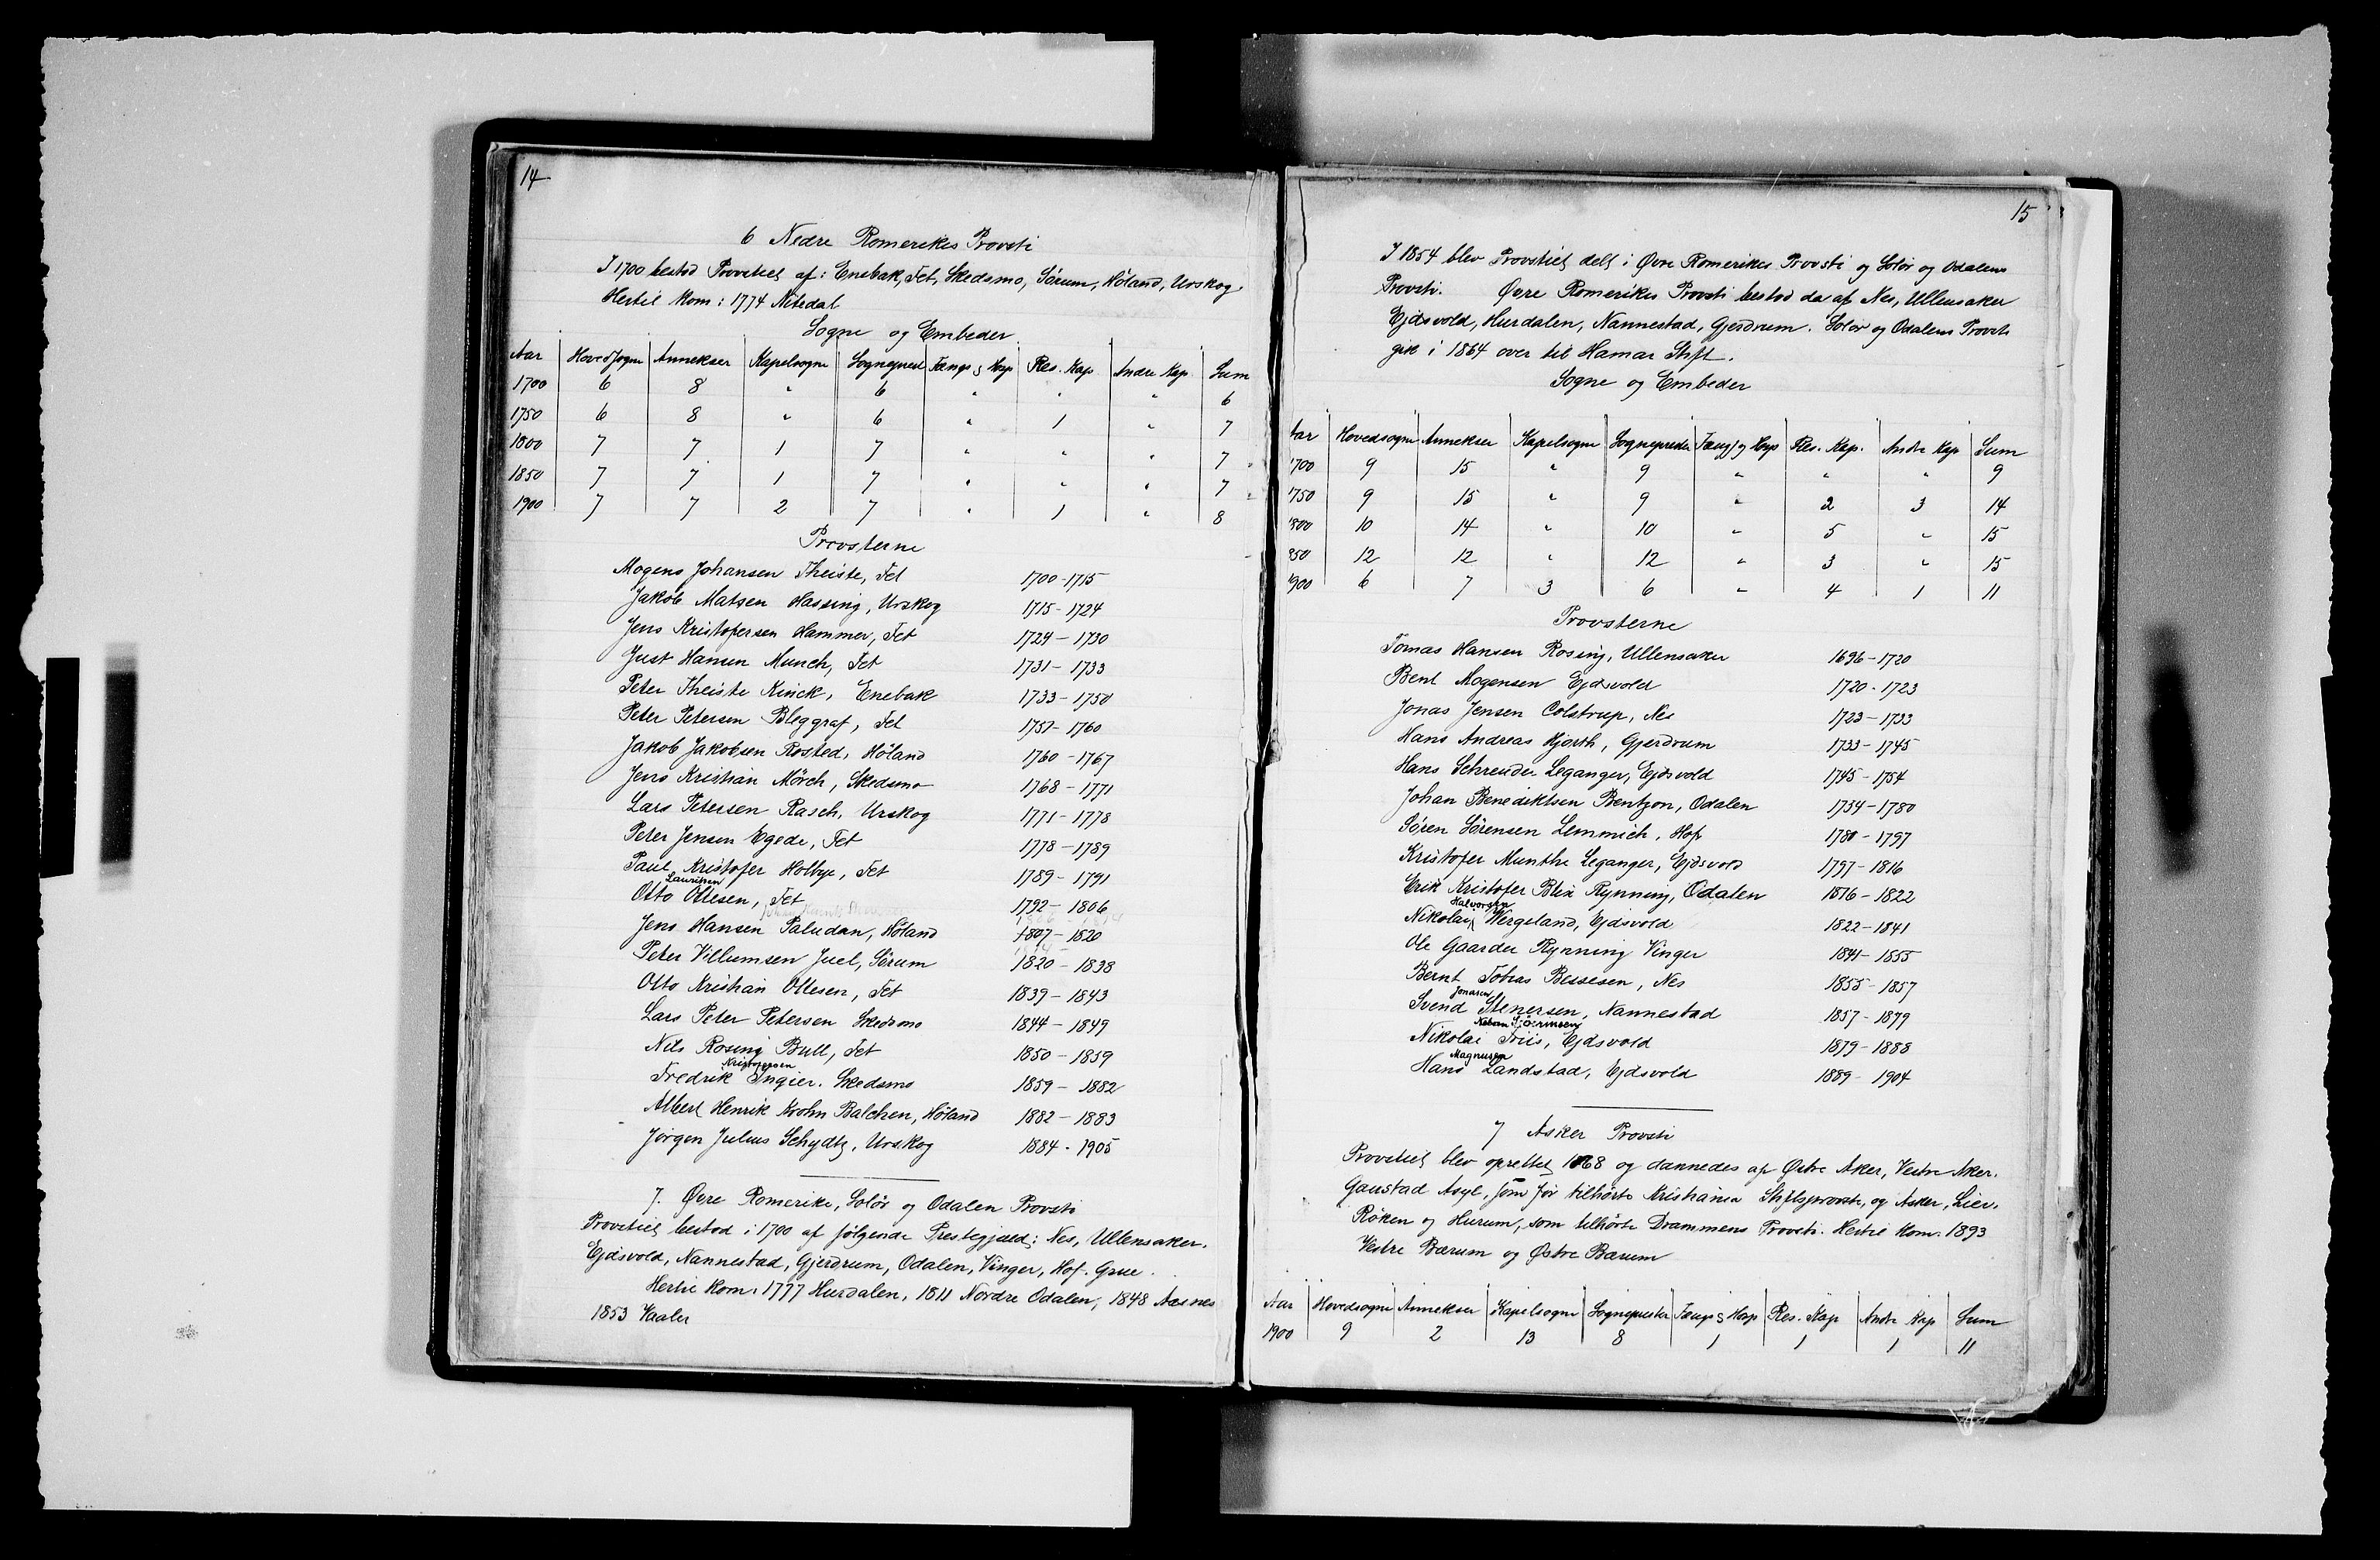 14
6 Nedre Romerikes Provsti
I 1700 bestod Provstiet af: Enebak, Fet, Skedsmo, Sörum, Höland, Urskog.
Hertil kom: 1774 Nitedal
Sogne og Embeder
Aar Hovedsogne Annekser Kapelsogne Sogneprest Fængs & Hosp Res. Kap Andre Kap. Sum
1700 6 8 " 6 " " " 6
1750 6 8 " 6 " 1 " 7
1800 7 7 1 7 " " " 7
1850 7 7 1 7 " " " 7
1900 7 7 2 7 " 1 " 8
Provsterne
Mogens Johansen Theiste, Fet 1700-1715
Jakob Matsen Hassing, Urskog 1715-1724
Jens Kristofersen Hammer, Fet 1724-1730
Just Hansen Munch, Fet 1731-1733
Peter Theiste Kinck, Enebak 1733-1750
Peter Petersen Bleggraf, Fet 1751-1760
Jakob Jakobsen Rosted, Höland 1760-1767
Jens Kristian Mörch, Skedsmo 1768-1771
Lars Petersen Rasch, Urskog 1771-1778
Peter Jensen Egede, Fet 1778-1789
Paul Kristofer Holbye, Fet 1789-1791
Lauritsen
Otto Ottesen, Fet 1792-1806
Jens Hansen Paludan, Höland 1807-1820
Peter Villumsen Juel, Sörum 1820-1838
Otto Kristian Ottesen, Fet 1839-1843
Lars Peter Petersen Skedsmo 1844-1849
Nils Rosing Bull, Fet 1850-1859
Kristofersen
Fredrik Ingier. Skedsmo 1859-1882
Albert Henrik Krohn Balchen, Höland 1882-1883
Jörgen Julius Schydtz, Urskog 1884-1905
7. Övre Romerike, Solör og Odalen Provsti
Provstiet bestod i 1700 af fölgende Prestegjæld: Nes, Ullensaker.
Ejdsvold, Nannestad, Gjerdrum, Odalen, Vinger, Hof. Grue.
Hertil kom: 1777 Hurdalen, 1811 Nordre Odalen, 1848 Aasnes
1853 Vaaler
15
I 1854 blev Provstiet delt i Øvre Romerikes Provsti og Solör og Odalens
Provsti. Øvre Romerikes Provsti bestod da af Nes, Ullensaker
Ejdsvold, Hurdalen, Nannestad, Gjerdrum. Solör og Odalens Provsti
gik i 1864 over til Hamar Stift.
Sogne og Embeder
Aar Hovedsogne Annekser Kapelsogne Sogneprester Fængs og Hosp Res. Kap. Andre Kap Sum
1700 9 15 " 9 " " " 9
1750 9 15 " 9 " 2 3 14
1800 10 14 " 10 " 5 " 15
1850 12 12 " 12 " 3 " 15
1900 6 7 3 6 " 4 1 11
Provsterne
Tomas Hansen Rosing, Ullensaker 1696-1720
Bent Mogensen Ejdsvold 1720-1723
Jonas Jensen Colstrup, Nes 1723-1733
Hans Andreas Hjorth, Gjerdrum 1733-1745
Hans Schreuder Leganger, Ejdsvold 1745-1754
Johan Benediktsen Bentzon, Odalen 1754-1780
Sören Sörensen Lemmich, Hof 1780-1797
Kristofer Munthe Leganger, Ejdsvold 1797-1816
Erik Kristofer Blix Rynning, Odalen 1816-1822
Halvorsen
Nikolai Wergeland, Ejdsvold 1822-1841
Ole Gaarder Rynning Vinger 1841-1855
Bernt Tobias Bessesen, Nes 1855-1857
Jonasen
Svend Stenersen, Nannestad 1857-1879
Nikolai Friis, Ejdsvold 1879-1888
Magnusen
Hans Landstad, Ejdsvold 1889-1904
7 Asker Provsti
Provstiet blev oprettet 1868 og dannedes af Østre Aker, Vestre Aker.
Gaustad Asyl, som för tilhörte Kristiania Stiftsprovsti, og Asker, Lier.
Röken og Hurum, som tilhörte Drammens Provsti. Hertil kom. 1893
Vestre Bærum og Østre Bærum
Aar Hovedsogne Annekser Kapelsogne Sogneprester Fængs & Hosp Res. Kap Andre Kap Sum
1900 9 2 13 8 1 1 1 11